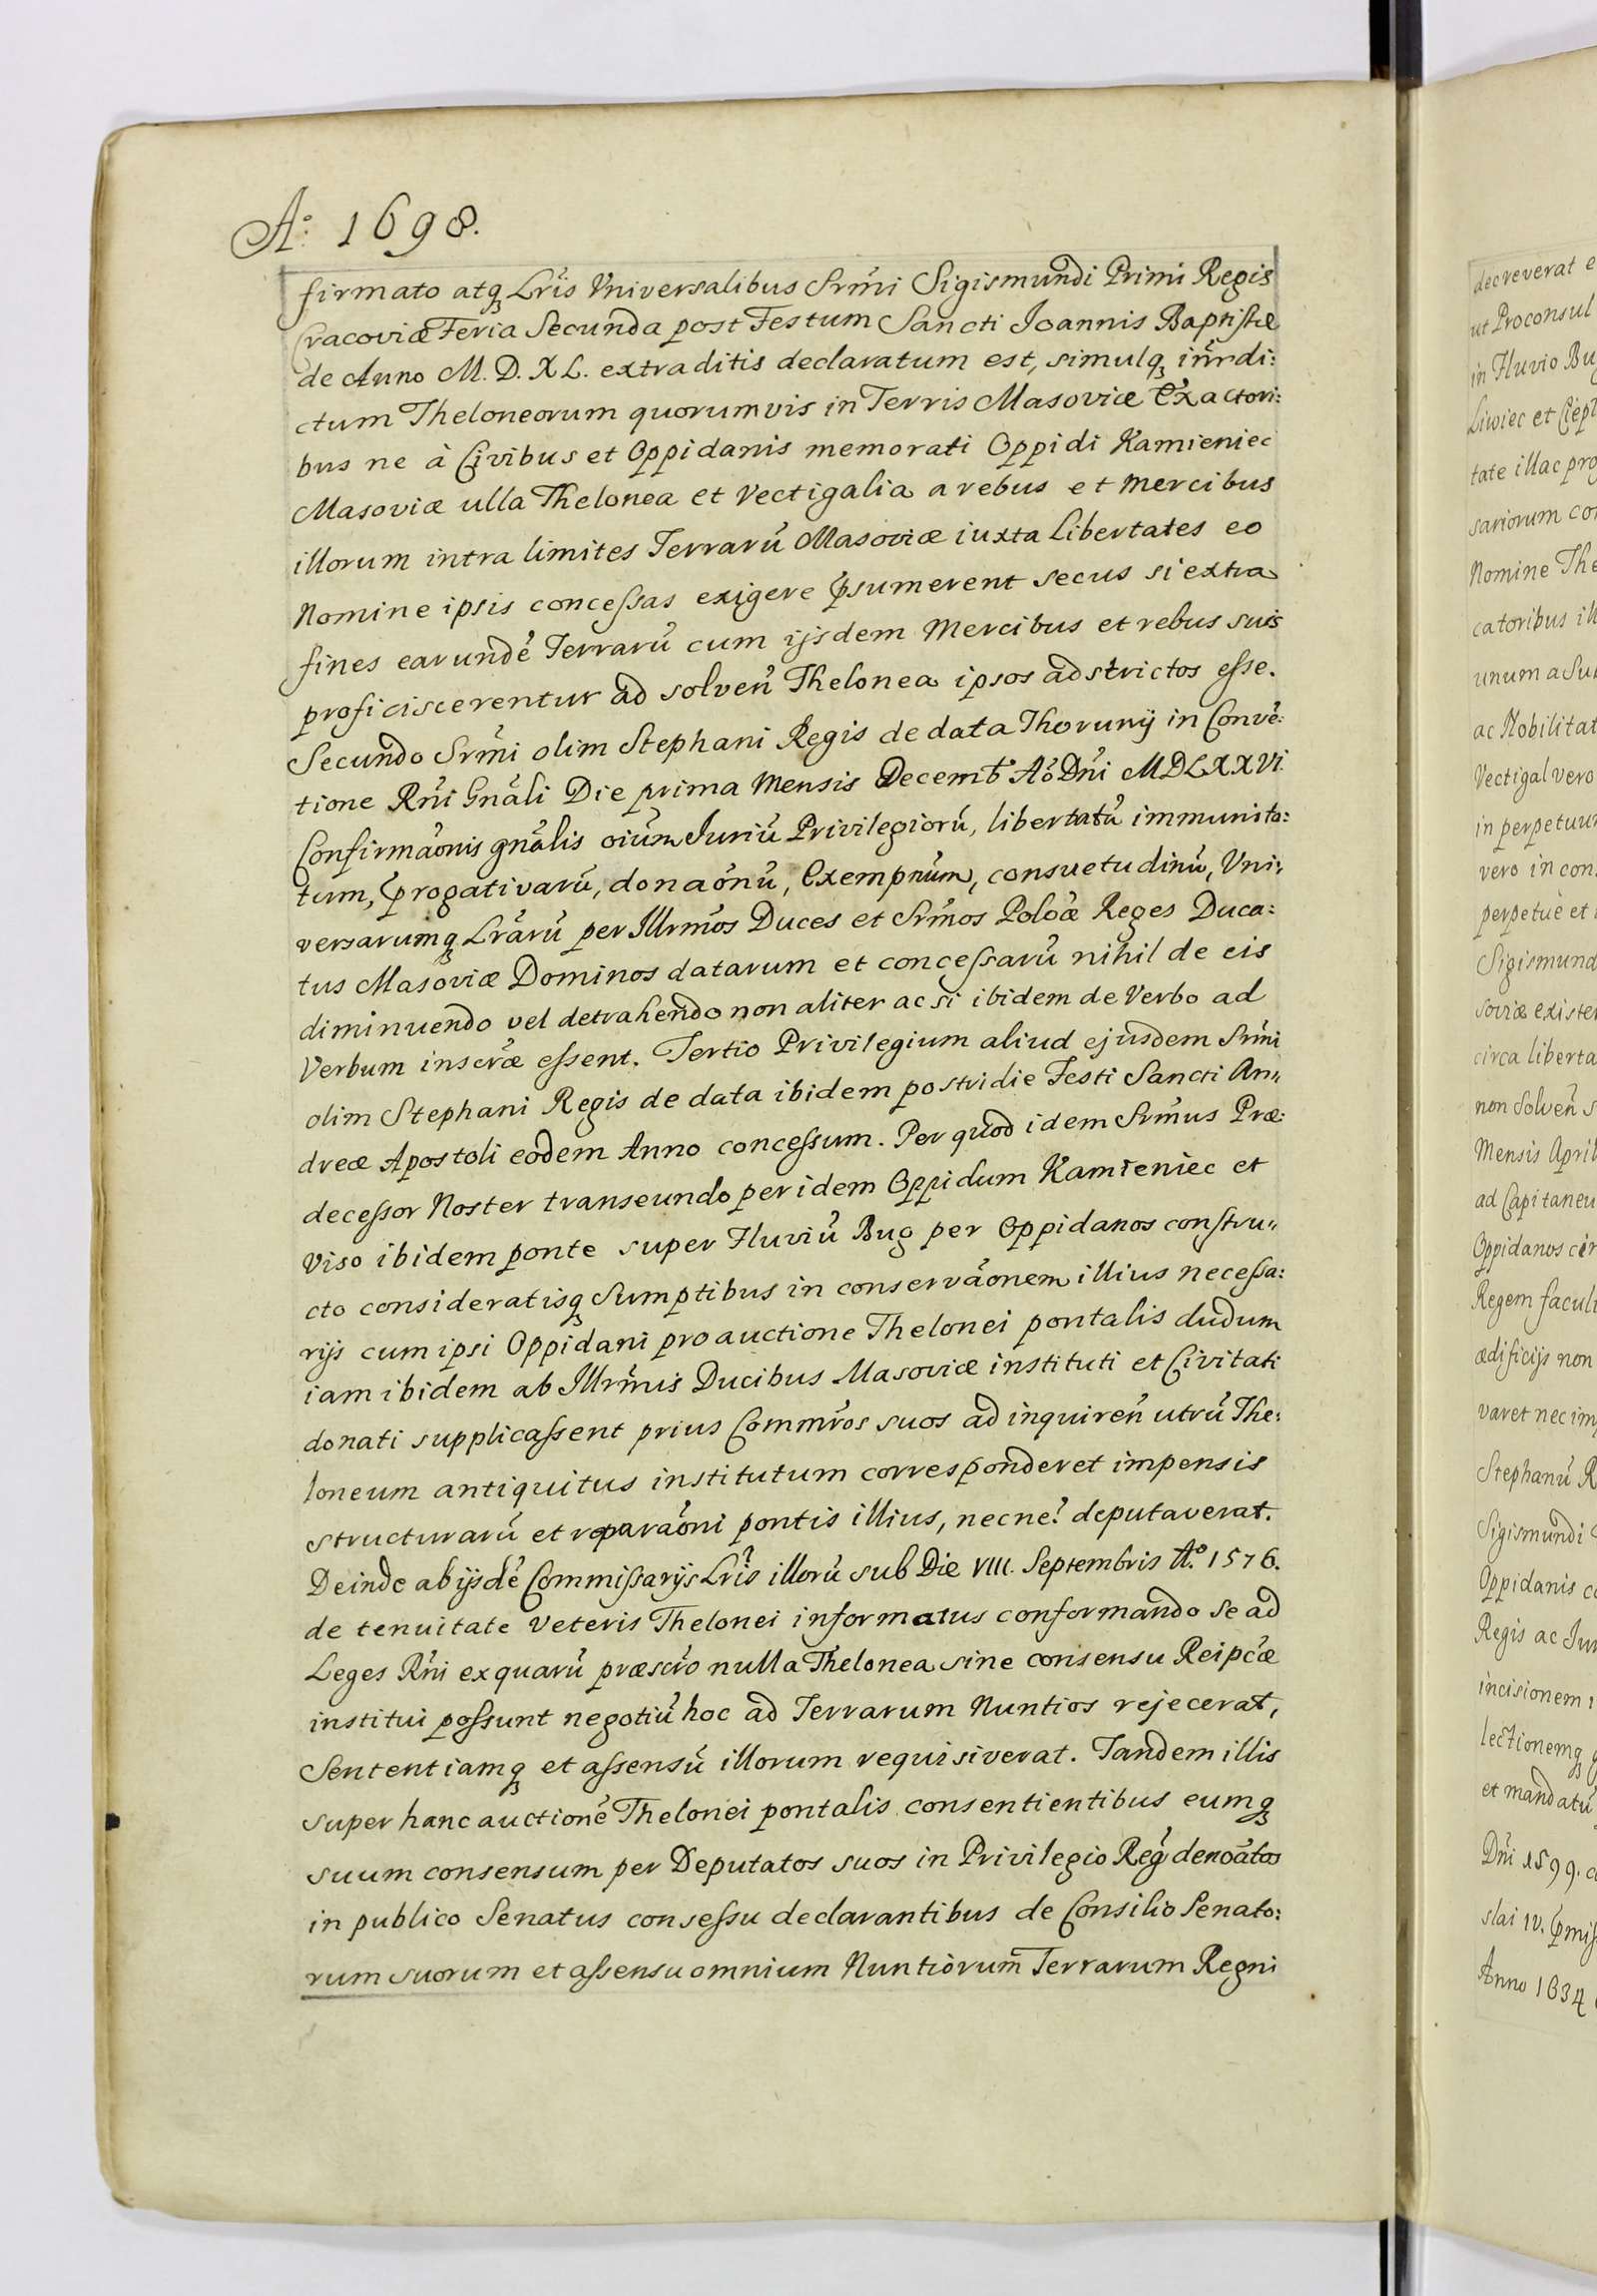 A.o 1698.
firmato atqꝫ Lris Vniversalibus Srm̃i Sigismundi Primi Regis
Cracoviæ Feria Secunda post Festum Sancti Joannis Baptistæ
de Anno M. D. XL. extraditis declaratum est, simulqꝫ inr̃di:
ctum Theloneorum quorumvis in Terris Masoviæ Exactori:
bus ne à Civibus et Oppidanis memorati Oppidi Kamieniec
Masoviæ ulla Thelonea et Vectigalia a rebus et Mercibus
illorum intra limites Terrarũ Masoviæ iuxta Libertates eo
Nomine ipsis concessas exigere p̃sumerent secus si extra
fines earundẽ Terrarũ cum ijsdem Mercibus et rebus suis
proficiscerentur ad solveñ Thelonea ipsos adstrictos esse.
Secundo Srm̃i olim Stephani Regis de data Thorunij in Convẽ:
tione Rñi Gnãli Die prima Mensis Decemb̃ Aõ Dñi MDLXXVI.
Confirmaõnis gnãlis oiũm Juriũ Privilegiorũ, libertatũ immunita:
tum, p̃rogativarũ, donaõnũ, Exempñum, consuetudinũ, Uni:
versarumqꝫ Lrãrũ per Illrm̃os Duces et Srm̃os Polõæ Reges Duca:
tus Masoviæ Dominos datarum et concessarũ nihil de eis
diminuendo vel detrahendo non aliter ac si ibidem de Verbo ad
Verbum inser̃æ essent. Tertio Privilegium aliud ejusdem Srm̃i
olim Stephani Regis de data ibidem postridie Festi Sancti An:
dreæ Apostoli eodem Anno concessum. Per quod idem Srm̃us Præ:
decessor Noster transeundo per idem Oppidum Kamieniec et
viso ibidem ponte super Fluviũ Bug per Oppidanos constru:
cto consideratisqꝫ Sumptibus in conservaõnem illius necessa:
rijs cum ipsi Oppidani pro auctione Thelonei pontalis dudum
iam ibidem ab Illrm̃is Ducibus Masoviæ instituti et Civitati
donati supplicassent prius Comm̃ros suos ad inquireñ utrũ The:
loneum antiquitus institutum corresponderet impensis
structurarũ et reparaõni pontis illius, necne? deputaverat.
Deinde ab ijsdẽ Commissarijs Lr̃is illorũ sub Die VIII. Septembris A.o 1576.
de tenuitate veteris Thelonei informatus conformando se ad
Leges Rñi ex quarũ præscr̃o nulla Thelonea sine consensu Reipc̃æ
institui possunt negotiũ hoc ad Terrarum Nuntios rejecerat,
Sententiamqꝫ et assensũ illorum requisiverat. Tandem illis
super hanc auctionẽ Thelonei pontalis consentientibus eumqꝫ
suum consensum per Deputatos suos in Privilegio Reg̃ denoãtos
in publico Senatus consessu declarantibus de Consilio Senato:
rum suorum et assensu omnium Nuntiorum Terrarum Regni
decreverat e
ut Proconsul
in Fluvio Bu
Liwiec et Ciepl
tate illac pro
sariorum co
Nomine The
catoribus ill
unum a Su
ac Nobilitat
Vectigal vero
in perpetuu
vero in con
perpetuè et
Sigismund
soviæ existe
circa liberta
non Solveñ s
Mensis April
ad Capitaneu
Oppidanos cir
Regem facult
ædificijs non
varet nec im
Stephanũ R
Sigismundi
Oppidanis co
Regis ac Jur
incisionem
lectionemqꝫ
et mandatũ
Dñi 1599.
slai IV. p̃mis
Anno 1634